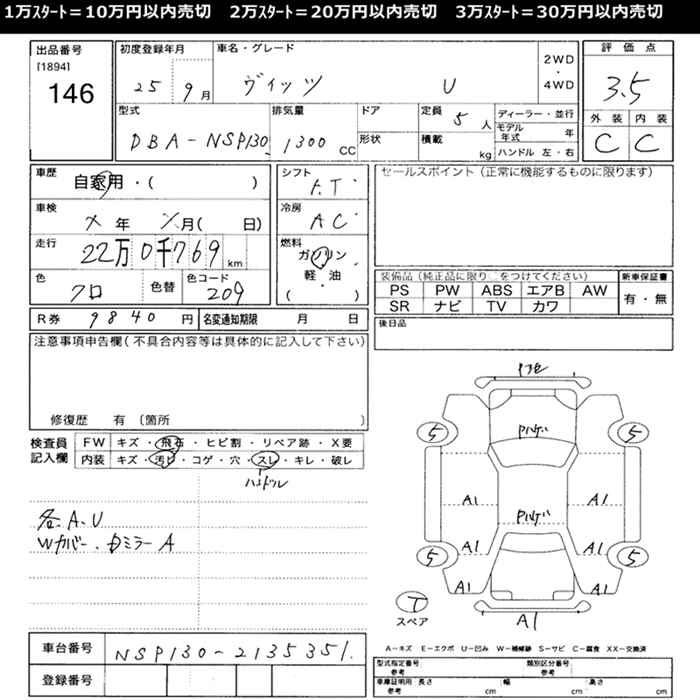 1万スタート＝10万円以内売切　2万スタート＝20万円以内売切　3万スタート＝30万円以内売切
出品番号
[1894]
146
初度登録年月
25 9月
車名・グレード
ヴィッツ U
2WD
・
4WD
評価点
3.5
外装 内装
C C
型式
DBA-NSP130
排気量
1300 CC
ドア
形状
定員 5人
積載 kg
ディーラー・並行
モデル年式 年
ハンドル 左・右
車歴
自家用・( )
車検
年 月( 日)
走行
22万0千769 km
色
クロ
色替
色コード
209
シフト
A.T
冷房
AC
燃料
ガソリン
・
軽油
・
( )
セールスポイント（正常に機能するものに限ります）
装備品（純正品に限り○をつけてください）
PS PW ABS エアB AW
SR ナビ TV カワ
新車保証書
有・無
R券 9840円
名変通知期限 月 日
後日品
注意事項申告欄（不具合内容等は具体的に記入して下さい）
修復歴 有〔箇所 〕
検査員
記入欄
FW キズ・飛石・ヒビ割・リペア跡・X要
内装 キズ・汚レ・コゲ・穴・スレ・キレ・破レ
ハンドル
各.A.U
Wカバー.ミラーA
5 5
A1 A1
A1 A1
5 5
A1 A1
T
スペア
A1
A－キズ E－エクボ U－凹み W－補修跡 S－サビ C－腐食 XX－交換済
車台番号
NSP130-2135351.
登録番号
型式指定番号
参考
類別区分番号
参考
車庫証明用
参考
長さ cm 幅 cm 高さ cm